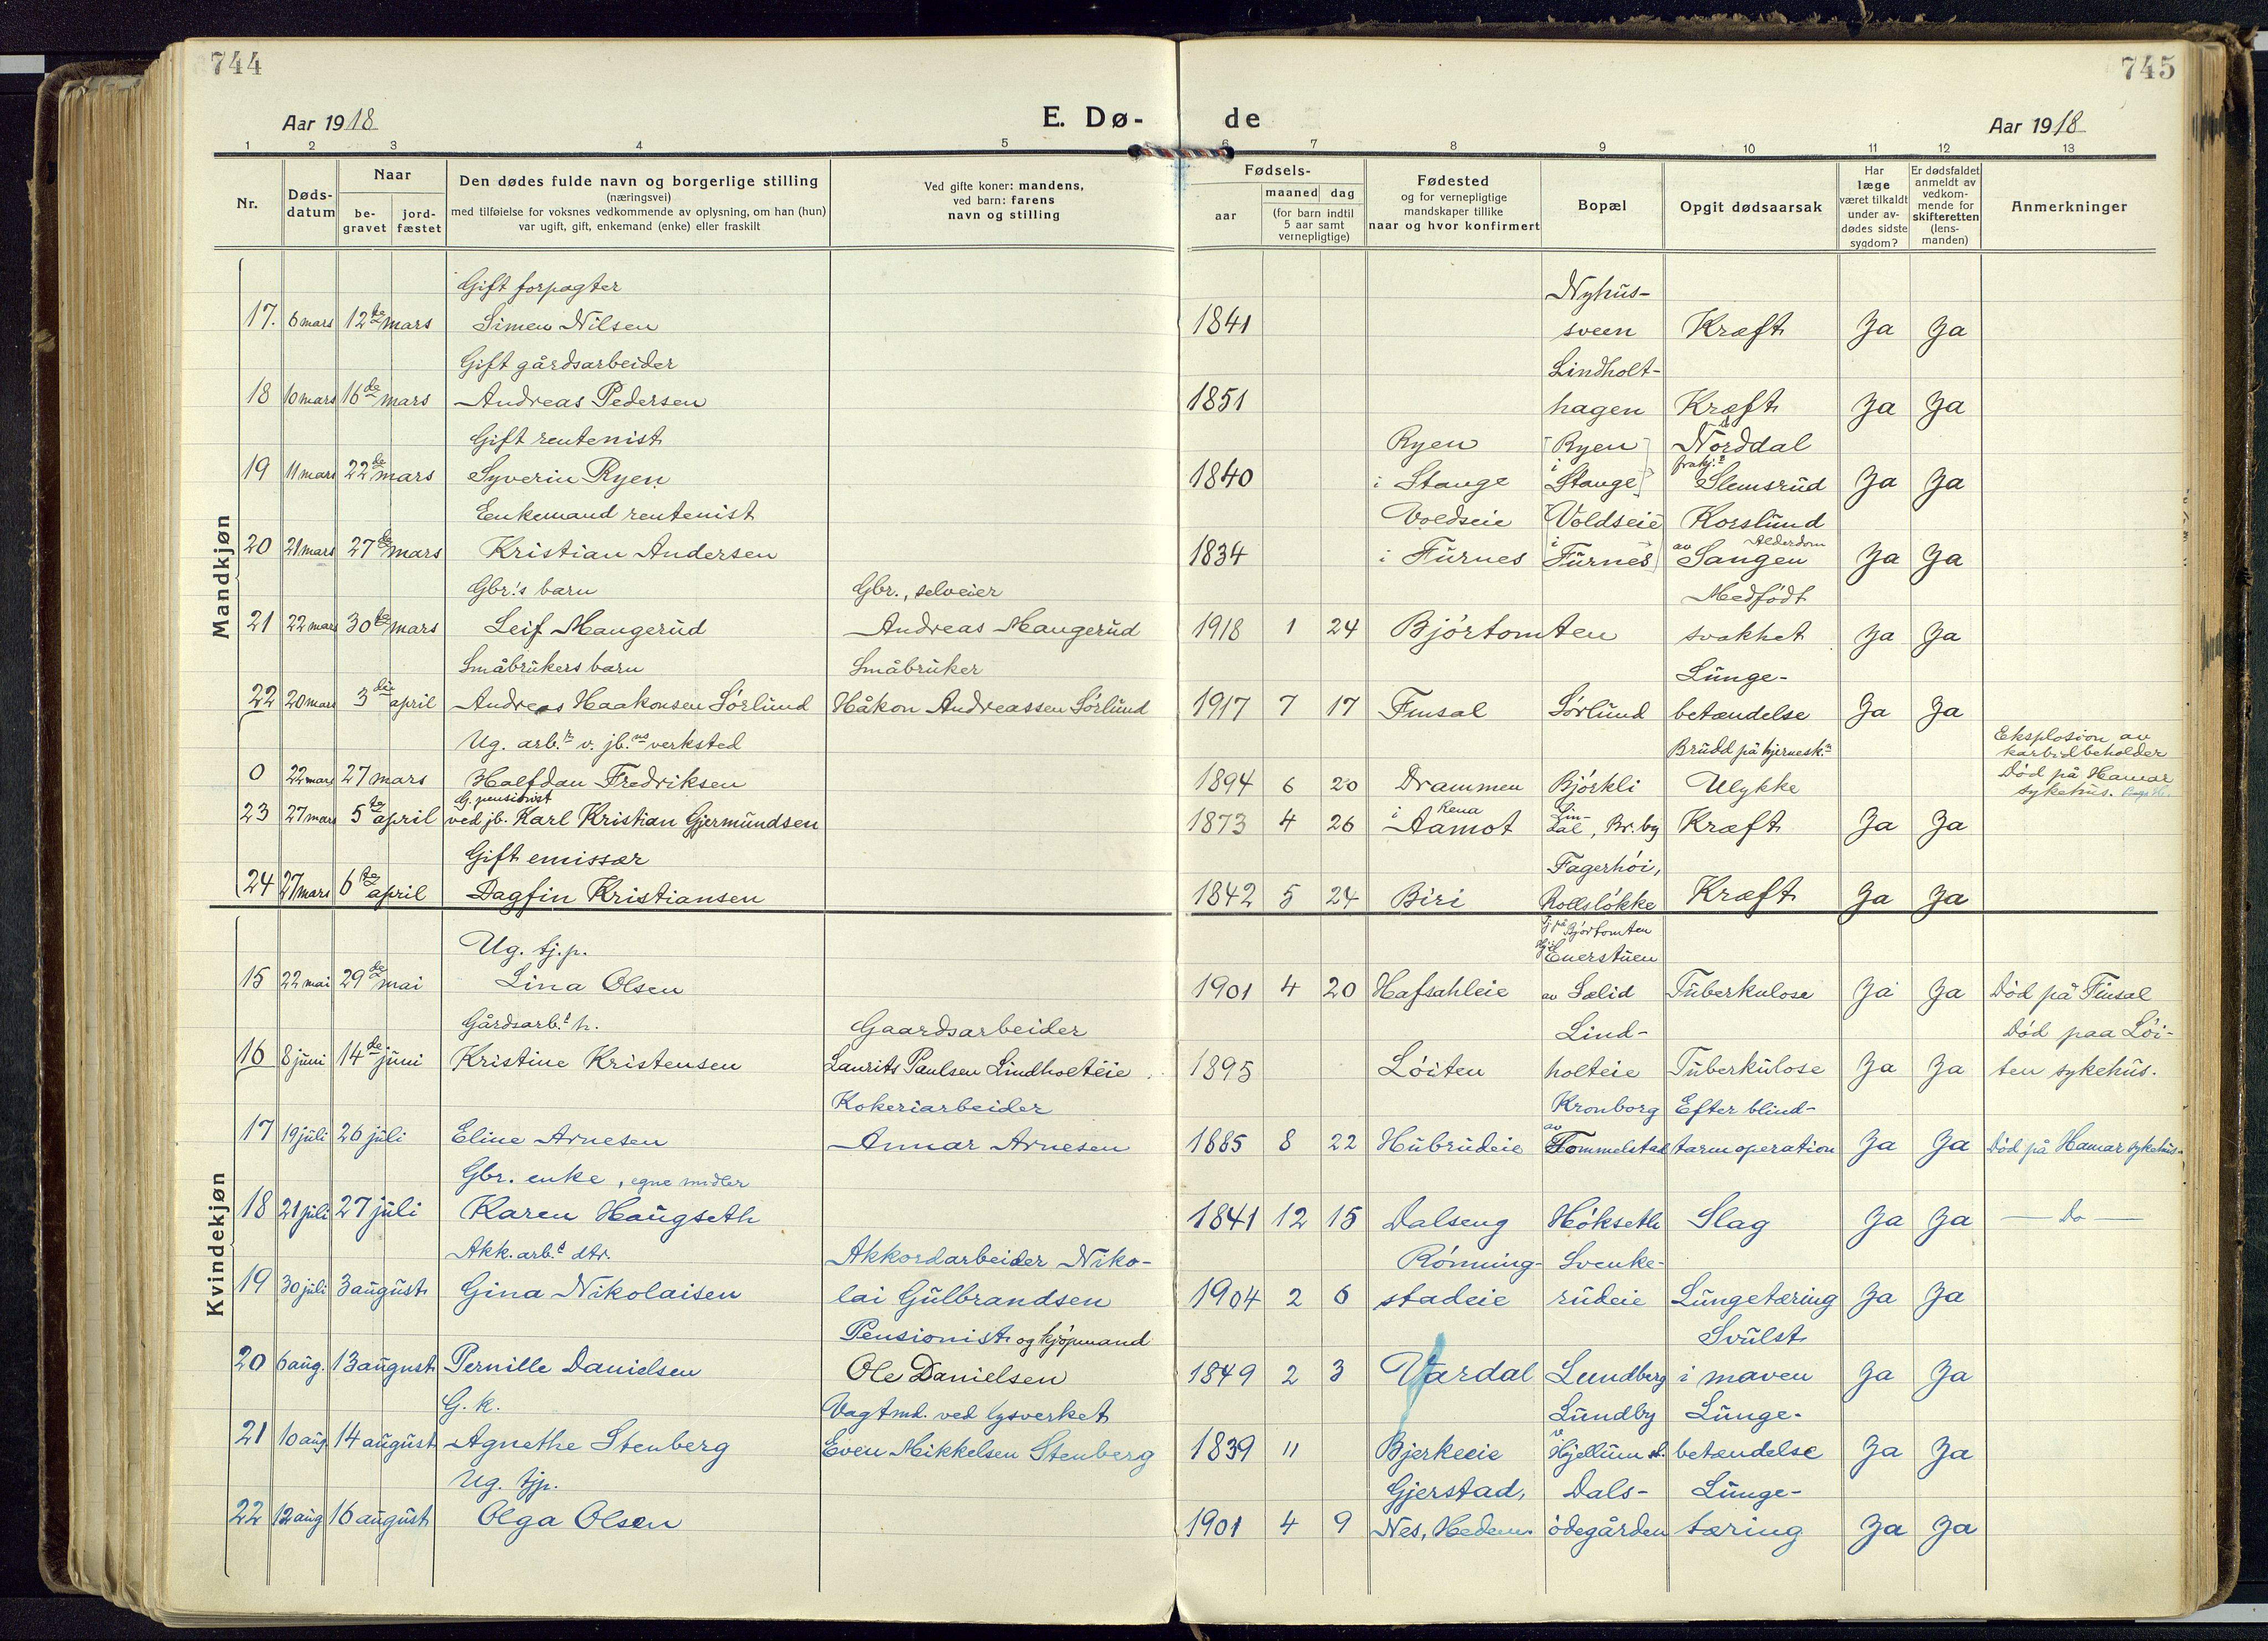 744
745
Aar 1918
E. Dø-
de
Aar 1918
1 2 3 4 5 6 7 8 9 10 11 12 13
Nr.
Døds-
datum
Naar
be-
gravet
jord-
fæstet
Den dødes fulde navn og borgerlige stilling
(næringsvei)
med tilføielse for voksnes vedkommende av oplysning, om han (hun)
var ugift, gift, enkemand (enke) eller fraskilt
Ved gifte koner: mandens,
ved barn: farens
navn og stilling
Fødsels-
aar
maaned dag
(for barn indtil
5 aar samt
vernepligtige)
Fødested
og for vernepligtige
mandskaper tillike
naar og hvor konfirmert
Bopæl
Opgit dødsaarsak
Har
læge
været tilkaldt
under av-
dødes sidste
sygdom?
Er dødsfaldet
anmeldt av
vedkom-
mende for
skifteretten
(lens-
manden)
Anmerkninger
Mandkjøn
Gift forpagter Nyhus-
17. 6 mars 12te mars Simen Nilsen 1841 sveen Kræft Ja Ja
Gift gårdsarbeider Lindholt-
18 10 mars 16de mars Andreas Pedersen 1851 hagen Kræft Ja Ja
Gift rentenist Ryen Ryen Norddal
19 11 mars 22de mars Syverin Ryen 1840 i Stange i Stange Slemsrud Ja Ja
Enkemand rentenist Voldseie Voldseie Korslund
20 21 mars 27de mars Kristian Andersen 1834 i Furnes i Furnes av Sangen Alderdom Ja Ja
Gbr.'s barn Gbr., selveier Medfødt
21 22 mars 30te mars Leif Maugerud Andreas Maugerud 1918 1 24 Bjørtomten svakhet Ja Ja
Småbrukers barn Småbruker Lunge-
22 20 mars 3die april Andreas Haakonsen Sørlund Håkon Andreassen Sørlund 1917 7 17 Finsal Sørlund betændelse Ja Ja
Ug. arb.r v. jb.ns verksted Brudd på hjernesk. Eksplosion av
karbidbeholder
0 22 mars 27 mars Halfdan Fredriksen 1894 6 20 Drammen Bjørkli Ulykke Død på Hamar
sykehus.
G. pensionist Rena Lin-
23 27 mars 5te april ved jb. Karl Kristian Gjermundsen 1873 4 26 i Aamot dal, Br.by Kræft Ja Ja
Gift emissær Fagerhøi,
24 27 mars 6te april Dagfin Kristiansen 1842 5 24 Biri Rolsløkke Kræft Ja Ja
Kvindekjøn
Bjørtomten
Ug. tj.p. Enerstuen
15 22 mai 29de mai Lina Olsen 1901 4 20 Hafsahleie av Sælid Tuberkulose Ja Ja Død på Finsal
Gårdsarb.s h. Gaardsarbeider Lind- Død paa Løi-
16 8 juni 14de juni Kristine Kristensen Laurits Paulsen Lindholteie 1895 Løiten holteie Tuberkulose Ja Ja ten sykehus.
Kokeriarbeider Kronborg Efter blind-
17 19 juli 26 juli Eline Arnesen Annar Arnesen 1885 8 22 Hubrudeie av Tommelstad tarmoperation Ja Ja Død på Hamar sykehus.
Gbr. enke, egne midler
18 21 juli 27 juli Karen Haugseth 1841 12 15 Dalseng Høkseth Slag Ja Ja — Do —
Akk. arb.s dtr. Akkordarbeider Niko- Rønning- Svenke-
19 30 juli 3 august Gina Nikolaisen lai Gulbrandsen 1904 2 6 stadeie rudeie Lungetæring Ja Ja
Pensionist og kjøpmand Svulst
20 6 aug. 13 august Pernille Danielsen Ole Danielsen 1849 2 3 Vardal Lundberg i maven Ja Ja
G. k. Vagtmd. ved lysverket Lundby Lunge-
21 10 aug 14 august Agnethe Stenberg Even Mikkelsen Stenberg 1839 11 Bjerkeeie v Hjellum st. betændelse Ja Ja
Ug. tjp. Gjerstad, Dals- Lunge-
22 12 aug 16 august Olga Olsen 1901 4 9 Nes, Hedem. ødegården tæring Ja Ja